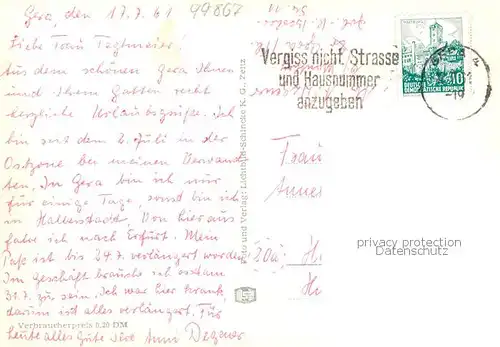 Gera, den 17.7.61
99867
Liebe Frau Tegtmeier!
Aus dem schönen Gera Ihnen
und Ihrem Gatten recht
herzliche Urlaubsgrüße. Ich
bin seit dem 2. Juli in der
Ostzone bei meinen Verwand
ten. In Gera bin ich nur
für einige Tage, sonst bin ich
in Halberstadt. Von hier aus
fahre ich nach Erfurt. Mein
Paß ist bis 24.7. verlängert worden
Im Geschäft brauche ich erst am
31.7. zu sein. Ich war hier krank,
darum ist alles verlängert. Für
heute alles Gute Ihre Anni Degner
Verbraucherpreis 0,20 DM
Foto und Verlag: Lichtbild-Schincke K. G., Zeitz
Vergiss nicht Strasse
und Hausnummer
anzugeben
WARTBURG
10
DEUTSCHE
DEMOKRATISCHE REPUBLIK
-19
Frau
Annes
20a
H
H
privacy protection
Datenschutz